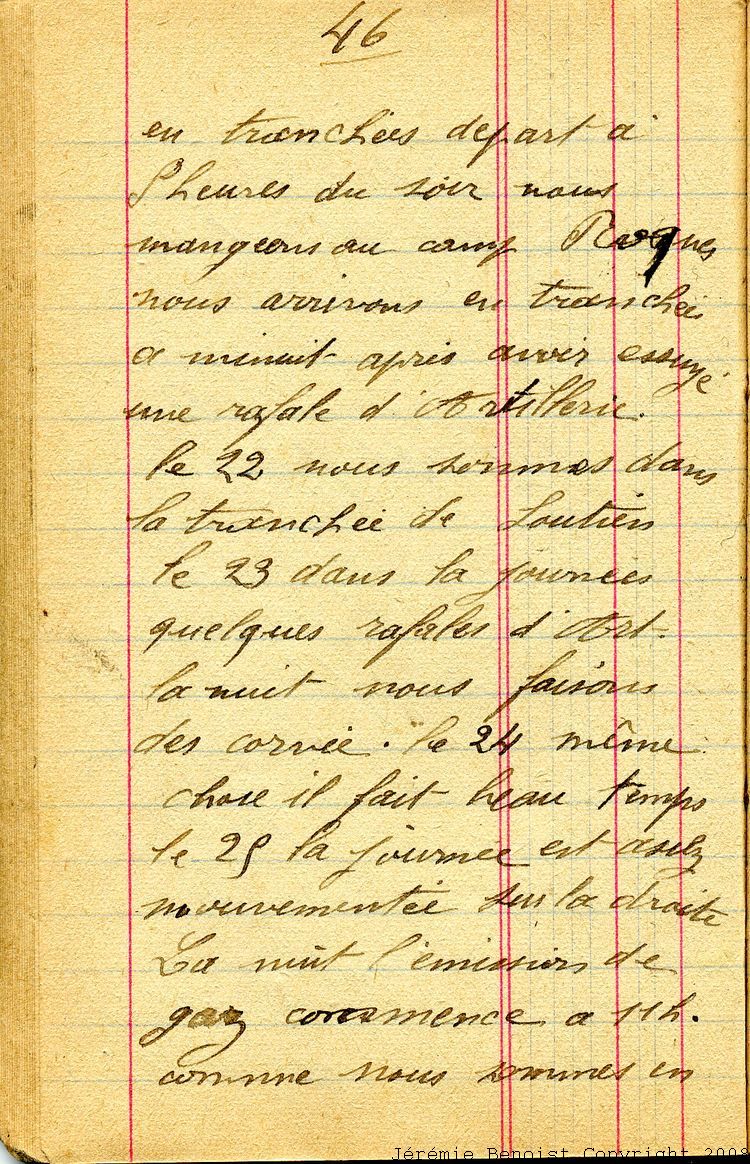 46
en tranchées depart a
8 heures du soir nous
mangeons au camp Roques
nous arrivons en tranchée
a minuit après avoir essuyé
une rafale d'Artillerie.
le 22 nous sommes dans
la tranchée de soutien
le 23 dans la journées
quelques rafales d'Art.
la nuit nous faisons
des corvée. le 24 même
chose il fait beau temps
le 25 la journée est assez
mouvementée sur la droite
La nuit l'émission de
gaz commence a 11h.
comme nous sommes en
Jérémie Benoist Copyright